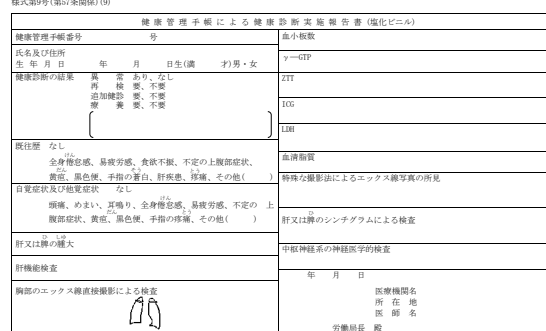 様式第9号(第57条関係)(9)
健康管理手帳による健康診断実施報告書(塩化ビニル)
健康管理手帳番号 号
氏名及び住所
生年月日 年 月 日生(満 才)男・女
健康診断の結果 異常 あり、なし
再検 要、不要
追加健診 要、不要
療養 要、不要
既往歴 なし
けん
全身倦怠感、易疲労感、食欲不振、不定の上腹部症状、
だん そう とう
黄疸、黒色便、手指の蒼白、肝疾患、疼痛、その他( )
自覚症状及び他覚症状 なし
けん
頭痛、めまい、耳鳴り、全身倦怠感、易疲労感、不定の 上
だん とう
腹部症状、黄疸、黒色便、手指の疼痛、その他( )
ひ しゅ
肝又は脾の腫大
肝機能検査
胸部のエックス線直接撮影による検査
血小板数
γ―GTP
ZTT
ICG
LDH
血清脂質
特殊な撮影法によるエックス線写真の所見
ひ
肝又は脾のシンチグラムによる検査
中枢神経系の神経医学的検査
年 月 日
医療機関名
所在地
医師名
労働局長 殿